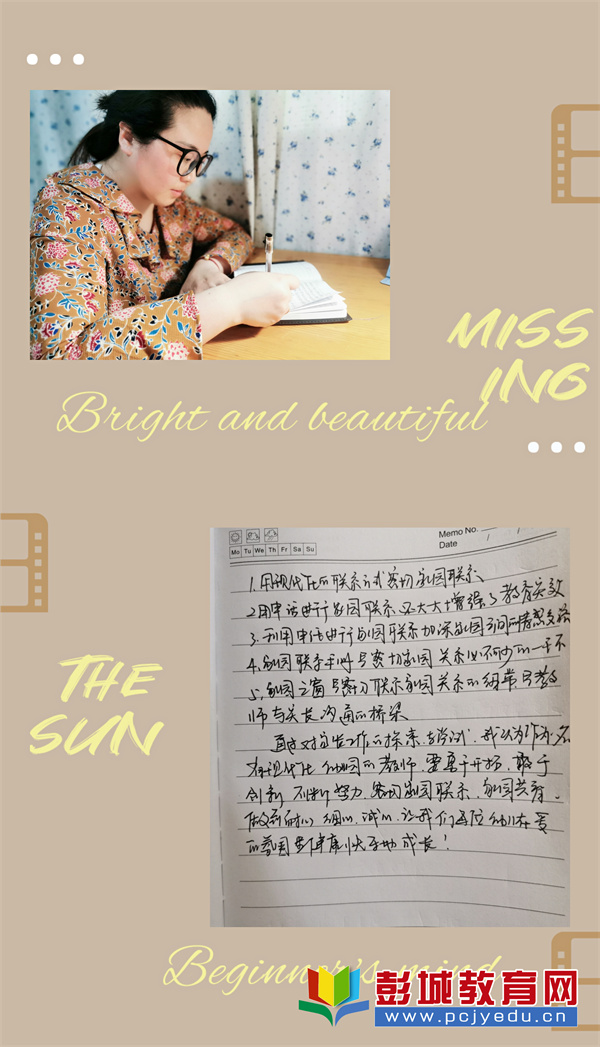 MISS
ING
Bright and beautiful
Memo No.
Date / /
Mo Tu We Th Fr Sa Su
1.用现代化的联系方式密切家园联系
2.用电话进行家园联系,又大大增强了教育实效
3.利用电话进行家园联系加深家园之间的情感交流
4.家园联系手册是密切家园关系必不可少的一手
5.家园之窗是密切联系家园关系的纽带是教
师与家长沟通的桥梁
通过对家长工作的探索与尝试,我认为作为名
有现代化幼儿园的教师,要勇于开拓,敢于
创新,不断努力,密切家园联系,家园共育,
做到耐心、细心、诚心,让我们每位幼儿在爱
的家园里健康快乐地成长!
THE
SUN
Beginner's mind
彭城教育网
www.pcjyedu.cn